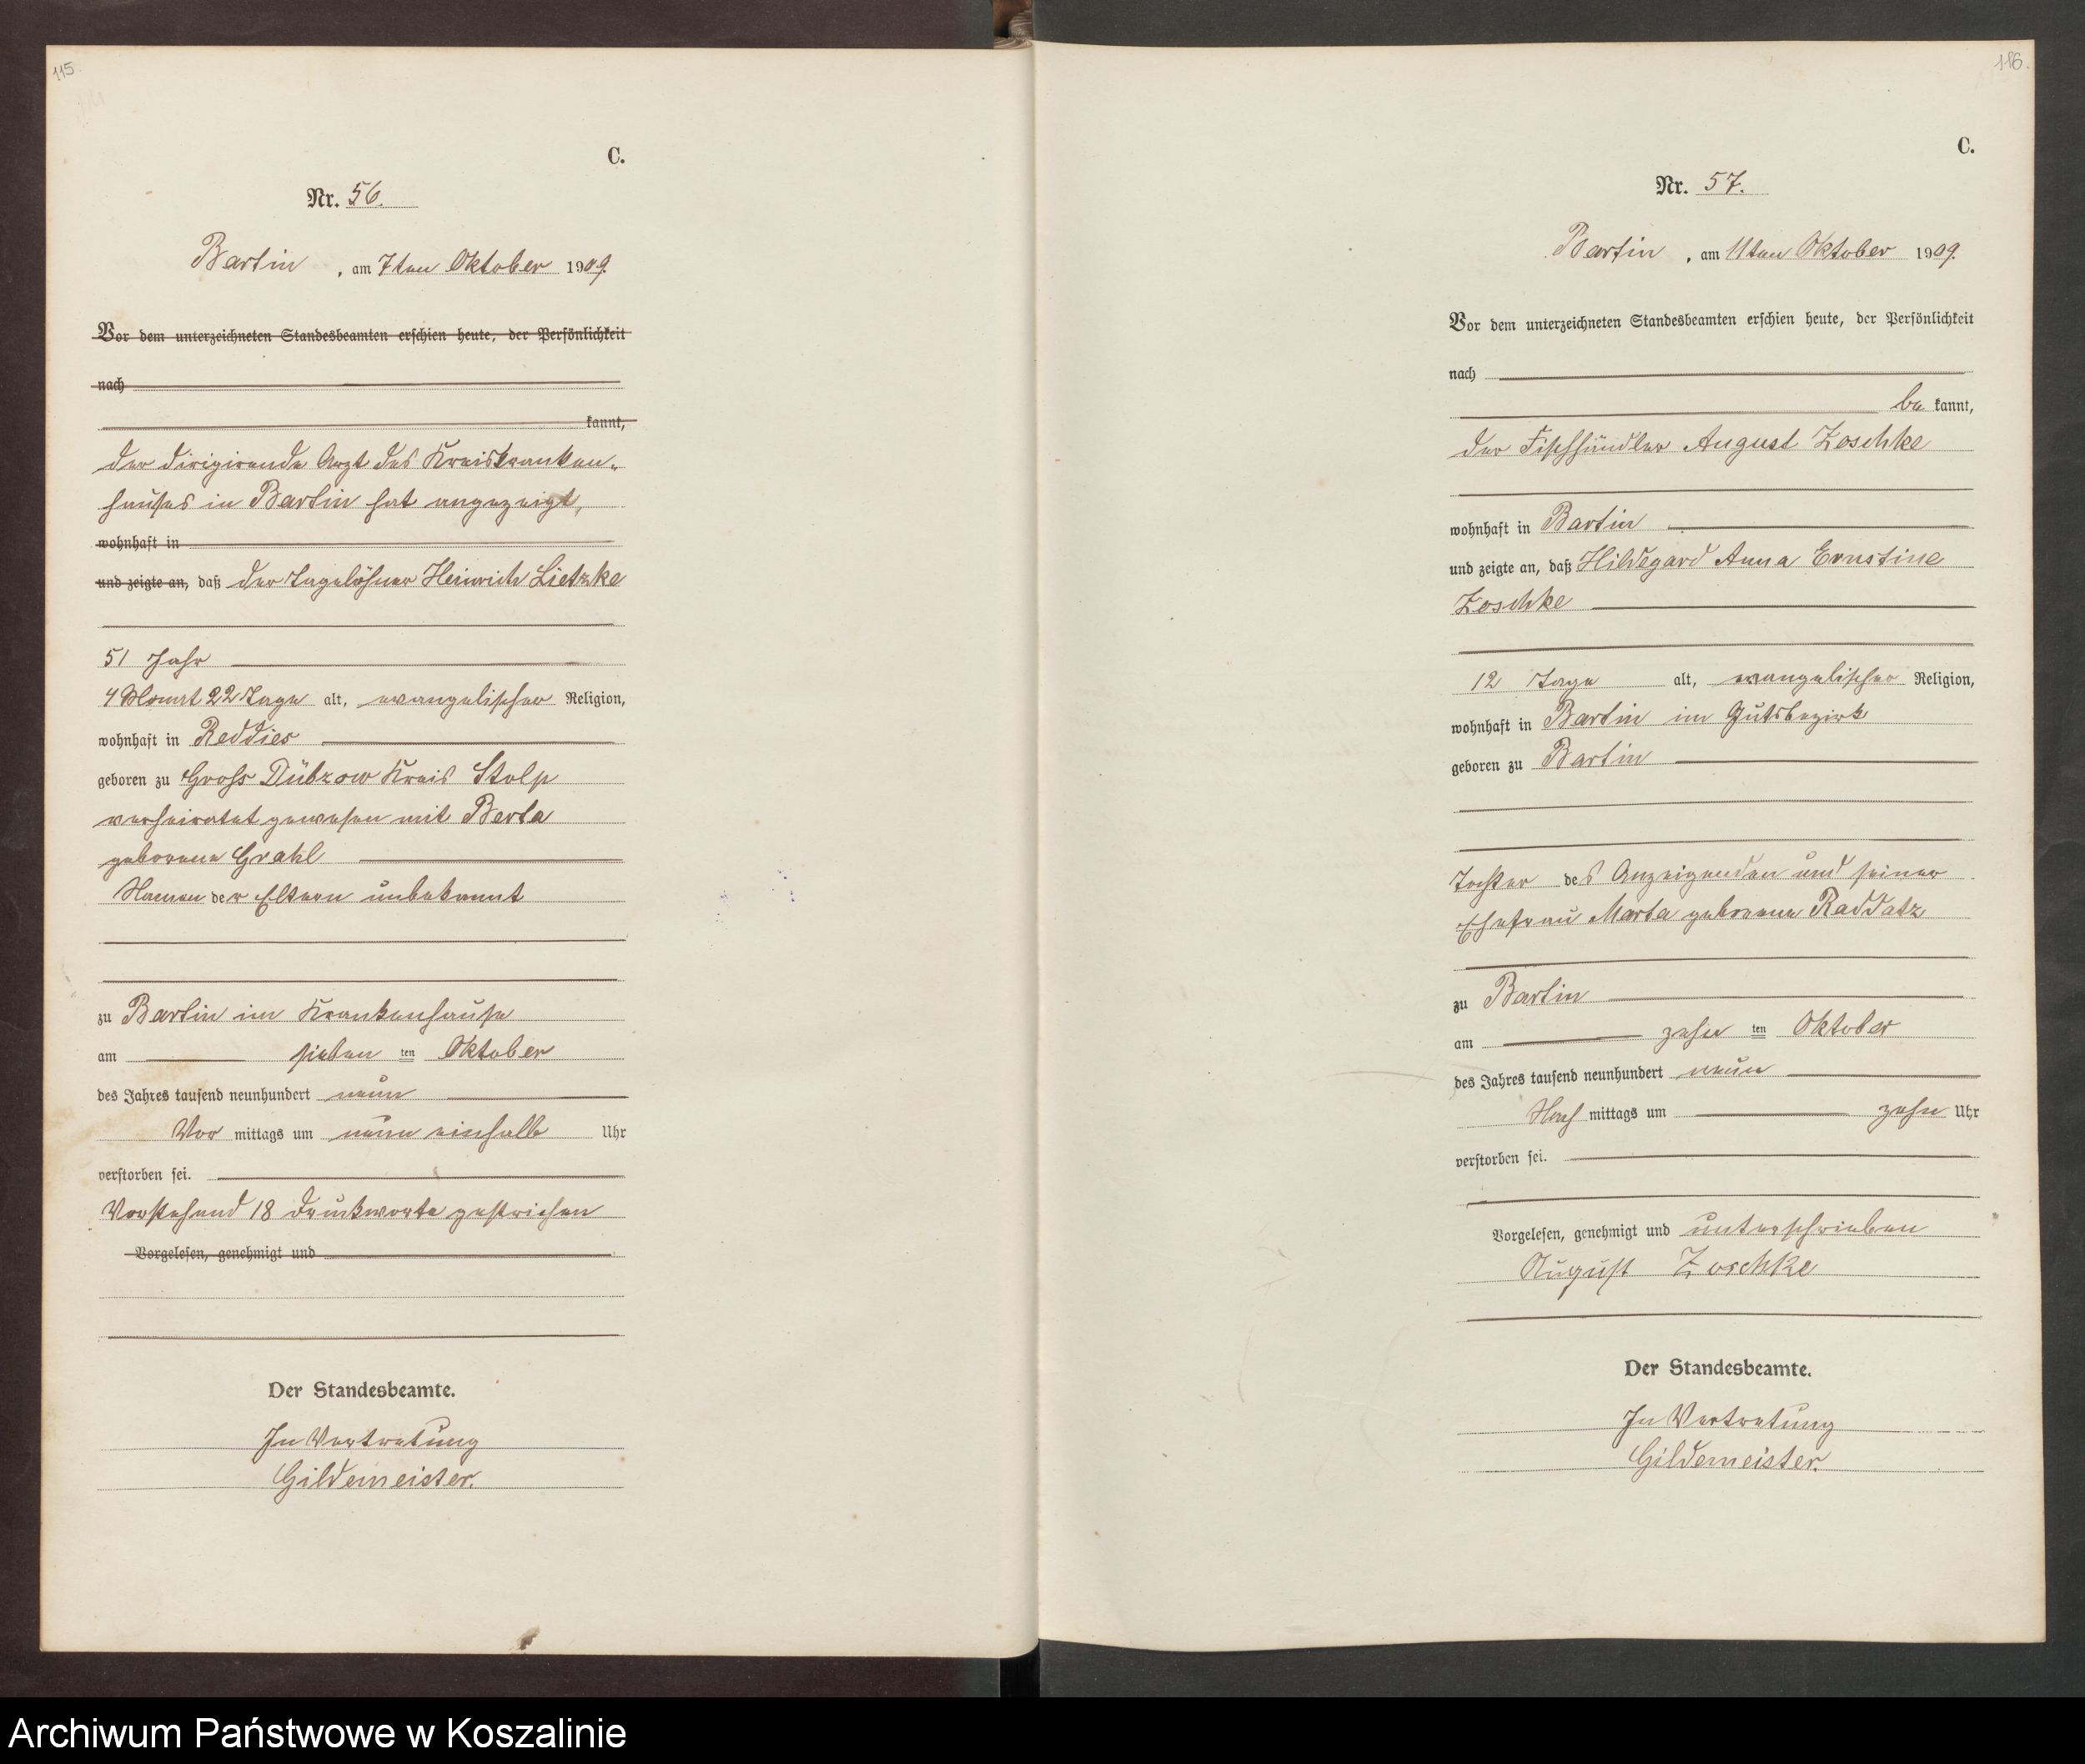 115.
C.
Nr. 56.
Bartin, am 7ten Oktober 1909.
Vor dem unterzeichneten Standesbeamten erschien heute, der Persönlichkeit
nach
kannt,
der dirigirende Arzt des Kreiskranken-
hauses in Bartin hat angezeigt,
wohnhaft in
und zeigte an, daß der Tagelöhner Heinrich Lietzke
51 Jahr
4 Monat 22 Tage alt, evangelischer Religion,
wohnhaft in Reddies
geboren zu Gross Dübzow Kreis Stolp
verheiratet gewesen mit Berta
geborene Grahl
Namen der Eltern unbekannt
zu Bartin im Krankenhause
am sieben ten Oktober
des Jahres tausend neunhundert neun
Vor mittags um neun einhalb Uhr
verstorben sei.
Vorstehend 18 Druckworte gestrichen
Vorgelesen, genehmigt und
Der Standesbeamte.
In Vertretung
Gildemeister.
116.
C.
Nr. 57.
Bartin, am 11ten Oktober 1909.
Vor dem unterzeichneten Standesbeamten erschien heute, der Persönlichkeit
nach
be kannt,
der Fischhändler August Zoschke
wohnhaft in Bartin
und zeigte an, daß Hildegard Anna Ernstine
Zoschke
12 Tage alt, evangelischer Religion,
wohnhaft in Bartin im Gutsbezirk
geboren zu Bartin
Tochter des Anzeigenden und seiner
Ehefrau Marta geborene Raddatz
zu Bartin
am zehn ten Oktober
des Jahres tausend neunhundert neun
Nach mittags um zehn Uhr
verstorben sei.
Vorgelesen, genehmigt und unterschrieben
August Zoschke
Der Standesbeamte.
In Vertretung
Gildemeister.
Archiwum Państwowe w Koszalinie